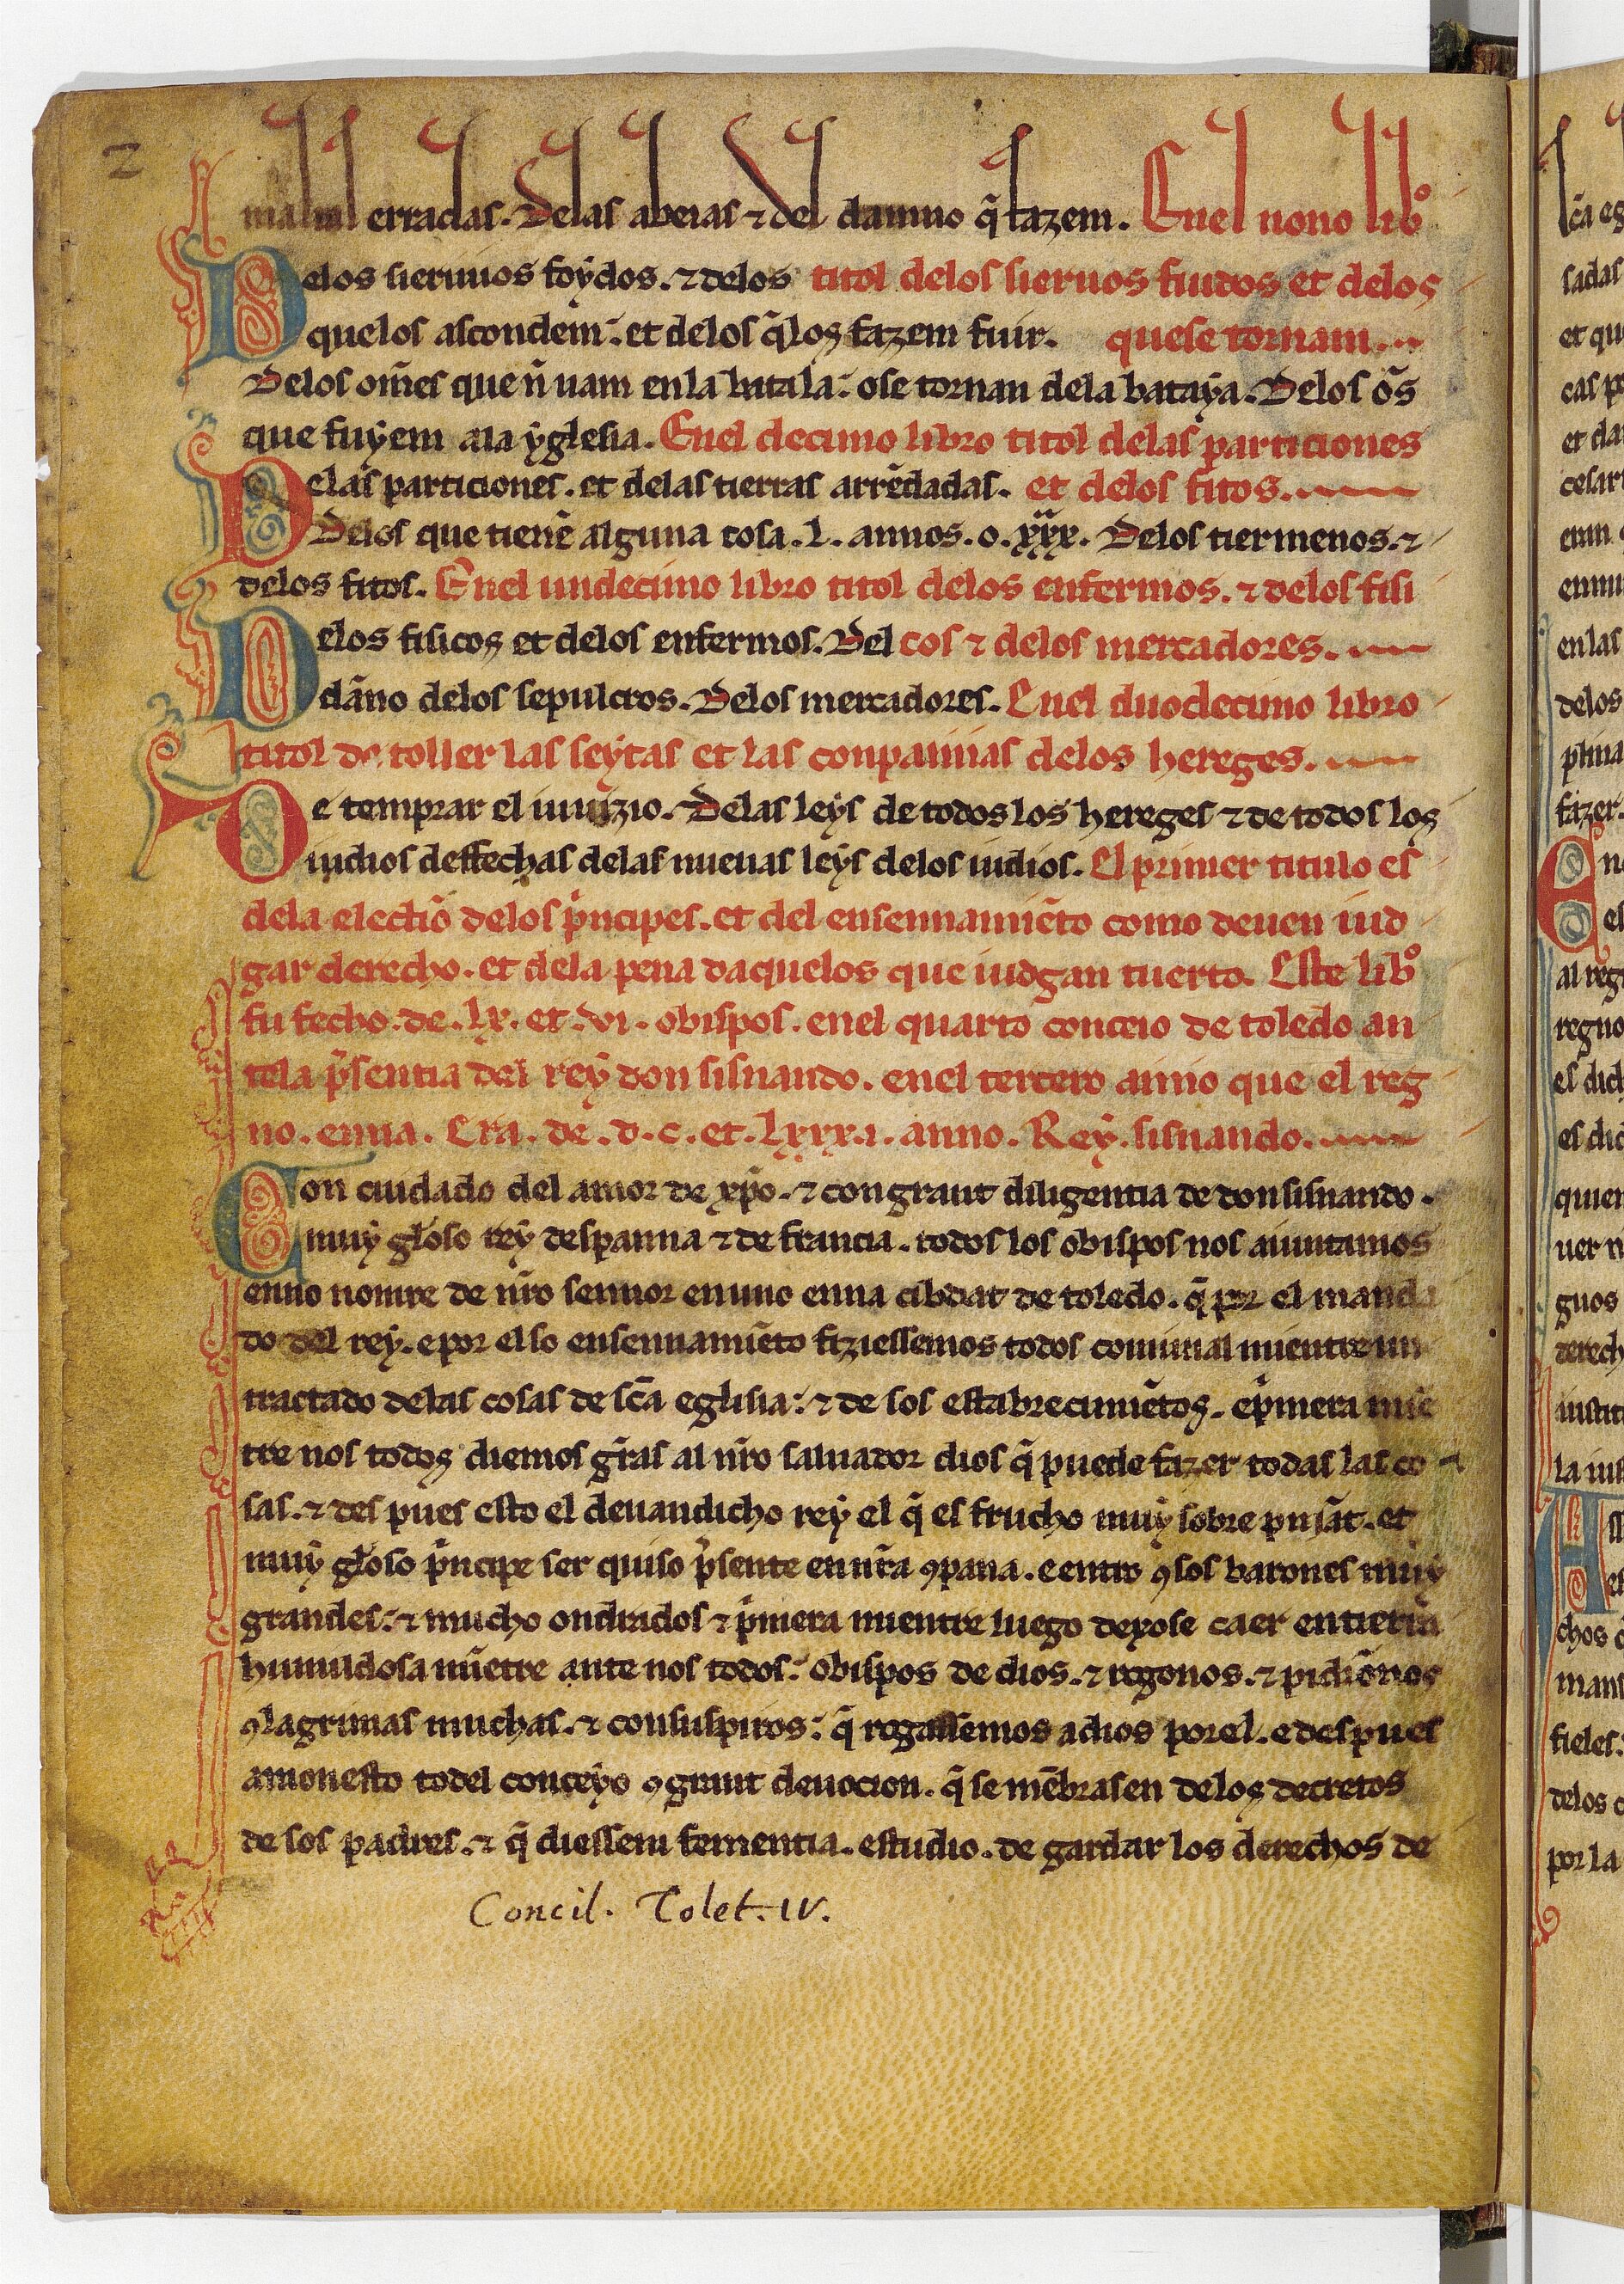 2
erradas. Delas abeias ⁊ del damno q̄ fazem. Enel nono lib̊
Delos sieruuos foẏdos. ⁊ delos titol delos sieruos fuidos et delos
quelos ascondem. et delos q̄los fazem fuir. quese tornam
Delos om̄es que ñ uam enla batala. ose tornan dela bataẏa. Delos ōs
que fuẏem ala ẏglesia. Enel decimo libro titol delas particiones
Delas particiones. et delas tierras arrēdadas. et delos fitos.
Delos que tienē alguna cosa. L. annos. o. xxx. Delos tiermenos. ⁊
delos fitos. Enel undecimo libro titol delos enfermos. ⁊ delos fisi
Delos fisicos et delos enfermos. Del cos ⁊ delos mercadores.
dāno delos sepulcros. Delos mercadores. Enel duodecimo libro
titol de toller las seẏtas et las conpannias delos hereges.
De temprar el iuuizio. Delas leẏs de todos los hereges ⁊ de todos los
iudios deffechas delas nueuas leẏs delos iudios. El primer titulo es
dela electiō delos p̍ncipes. et del ensennamiēto como deuen iud
gar derecho. et dela pena daquelos que iudgan tuerto. Este lib̊
fu fecho. de. lx. et. vi. obispos. enel quarto conceio de toledo an
tela p̄sentia del reẏ don sisnando. enel tercero anno que el reg
no. enna. Era. de. d. c. et. Lxxx.i. anno. Reẏ. sisnando.
Con cuidado del amor de xp̄o. ⁊ con graut diligentia de don sisnando.
muẏ gl̄oso reẏ despanna ⁊ de francia. todos los obispos nos aiuntamos
enno nomre de nr̄o sennor en uno enna cibdat de toledo. q̄ por el manda
do del reẏ. e por el so ensennamiēto fiziessemos todos comunal mientre un
tractado delas cosas de sc̄a eglisia. ⁊ de sos establrecimiētos. e p̍miera mie
tre nos todos diemos gr̄as al nr̄o saluador dios q̄ puede fazer todas las co
sas. ⁊ des pues esto el deuandicho reẏ el q̄ es frucho muẏ sobre puiāt. et
muẏ gl̄oso p̍ncipe ser quiso p̄sente en nr̄a ꝯpana. e entro ꝯ sos barones muẏ
grandes. ⁊ mucho ondrados ⁊ p̍miera mientre luego dexose caer en tierra
humildosa miētre ante nos todos. obispos de dios. ⁊ rogonos. ⁊ pidiōnos
ꝯ lagrimas muchas. ⁊ con suspiros. q̄ rogassemos a dios por el. e despues
amonesto todel conceẏo ꝯ graut deuocion. q̄ se mēbrasen delos decretos
de sos padres. ⁊ q̄ diessem fementia. estudio. de gardar los derechos de
Concil. Tolet. IV.